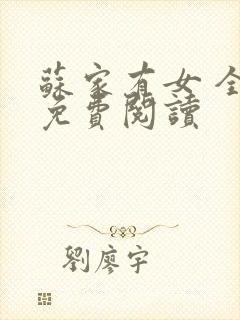 蘇家有女 全
免費閱讀
劉廖宇